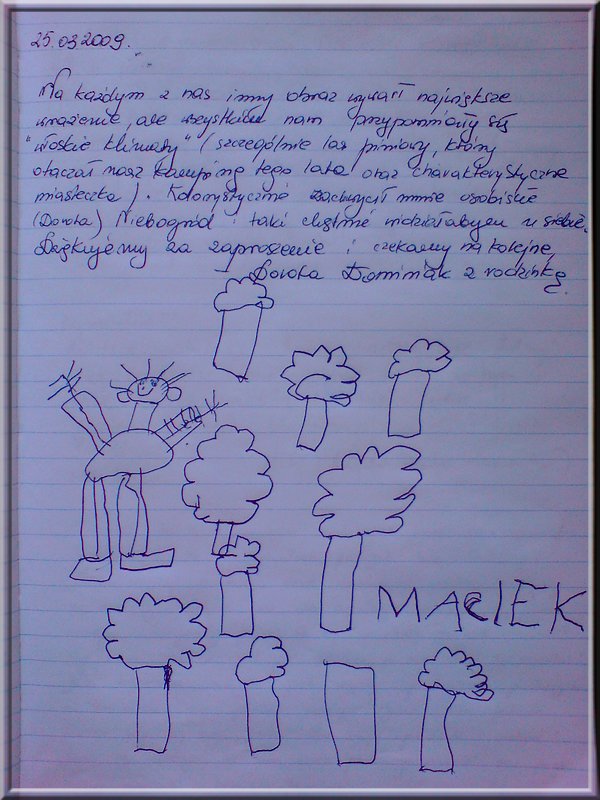 25.03.2009.
Na każdym z nas inny obraz wywarł największe
wrażenie, ale wszystkim nam przypominały się
"włoskie klimaty" (szczególnie las piniowy, który
otaczał nasz kamping tego lata oraz charakterystyczne
miasteczka). Kolorystycznie zachwycił mnie osobiście
(Dorota) Niebogród: taki chętnie widziałabym u siebie.
Dziękujemy za zaproszenie i czekamy na kolejne,
Dorota Dominiak z rodzinką.
MACIEK